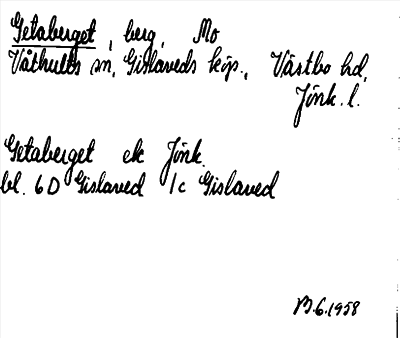 Getaberget, berg, Mo
Våthults sn, Gislaveds köp., Västbo hd,
Jönk. l.
Getaberget ek Jönk.
bl. 6D Gislaved 1c Gislaved
.6.1958